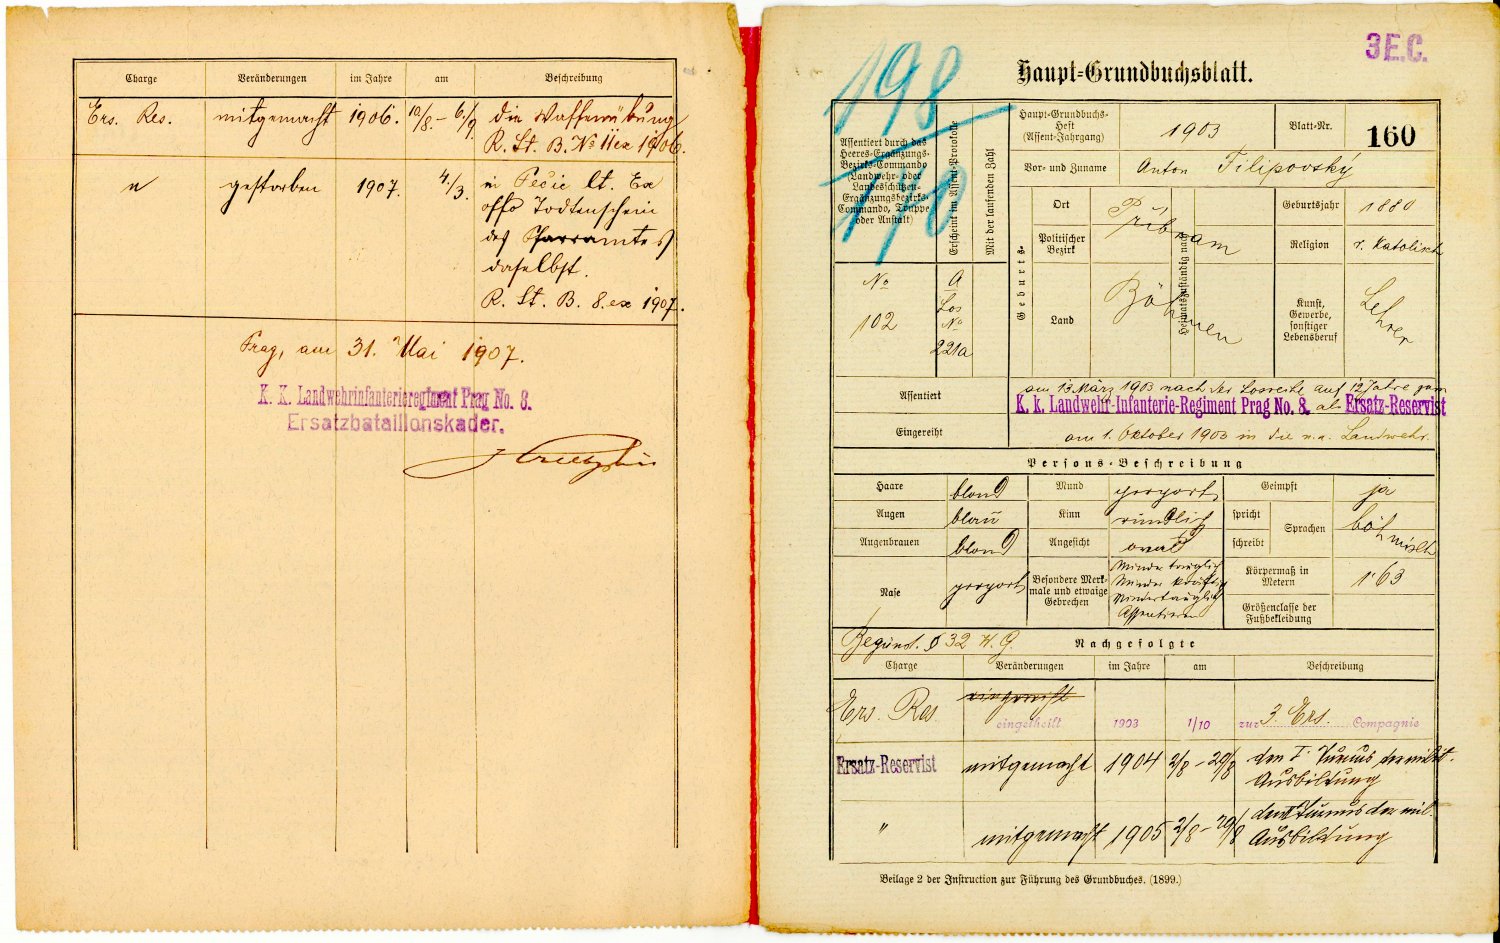 Charge Veränderungen im Jahre am Beschreibung
Ers. Res. mitgemacht 1906. 10/8. – 6./9. die Waffenübung
R. St. B. No II ex 1906.
" gestorben 1907. 4./3. in Pečic lt. Ex
offo Todtenschein
des Pfarramtes
daselbst.
R. St. B. 8. ex 1907.
Prag, am 31. Mai 1907.
K. K. Landwehrinfanterieregiment Prag No. 8.
Ersatzbataillonskader.
3E.C.
198
170
Haupt-Grundbuchsblatt.
Assentiert durch das
Heeres-Ergänzungs-
Bezirks-Commando
(Landwehr- oder
Landesschützen-
Ergänzungsbezirks-
Commando, Truppe
oder Anstalt)
Erscheint im Assent-Protokolle
Mit der laufenden Zahl
No
102
A
Los
No
221a
Haupt-Grundbuchs-
Heft
(Assent-Jahrgang)
1903
Blatt-Nr.
160
Vor- und Zuname
Anton Filipovský
Geburts-
Ort
Politischer
Bezirk
Land
Přibram
Böhmen
Heimatszuständig nach
Geburtsjahr 1880
Religion r. Katolisch
Kunst,
Gewerbe,
sonstiger
Lebensberuf
Lehrer
Assentiert
am 13. März 1903 nach der Losreihe auf 12 Jahre zum
K. k. Landwehr-Infanterie-Regiment Prag No. 8. als Ersatz-Reservist
Eingereiht
am 1. Oktober 1903 in die n. a. Landwehr.
Persons-Beschreibung
Haare blond Mund proport. Geimpft ja
Augen blau Kinn rundlich spricht
schreibt
Sprachen
böhmisch
Augenbrauen blond Angesicht oval
Nase proport.
Besondere Merk-
male und etwaige
Gebrechen
Mindertauglich
Minder kräftig
Mindertauglich
Assentieren
Körpermaß in
Metern
1·63
Größenclasse der
Fußbekleidung
Begünst. § 32 W. G. Nachgefolgte
Charge Veränderungen im Jahre am Beschreibung
Ers. Res. eingereiht
eingetheilt 1903 1/10 zur 3. Ers. Compagnie
Ersatz-Reservist mitgemacht 1904 2/8 – 29/8 den I. Turnus der milit.
Ausbildung
" mitgemacht 1905 2/8 – 29/8 den Turnus der mil.
Ausbildung
Beilage 2 der Instruction zur Führung des Grundbuches. (1899.)